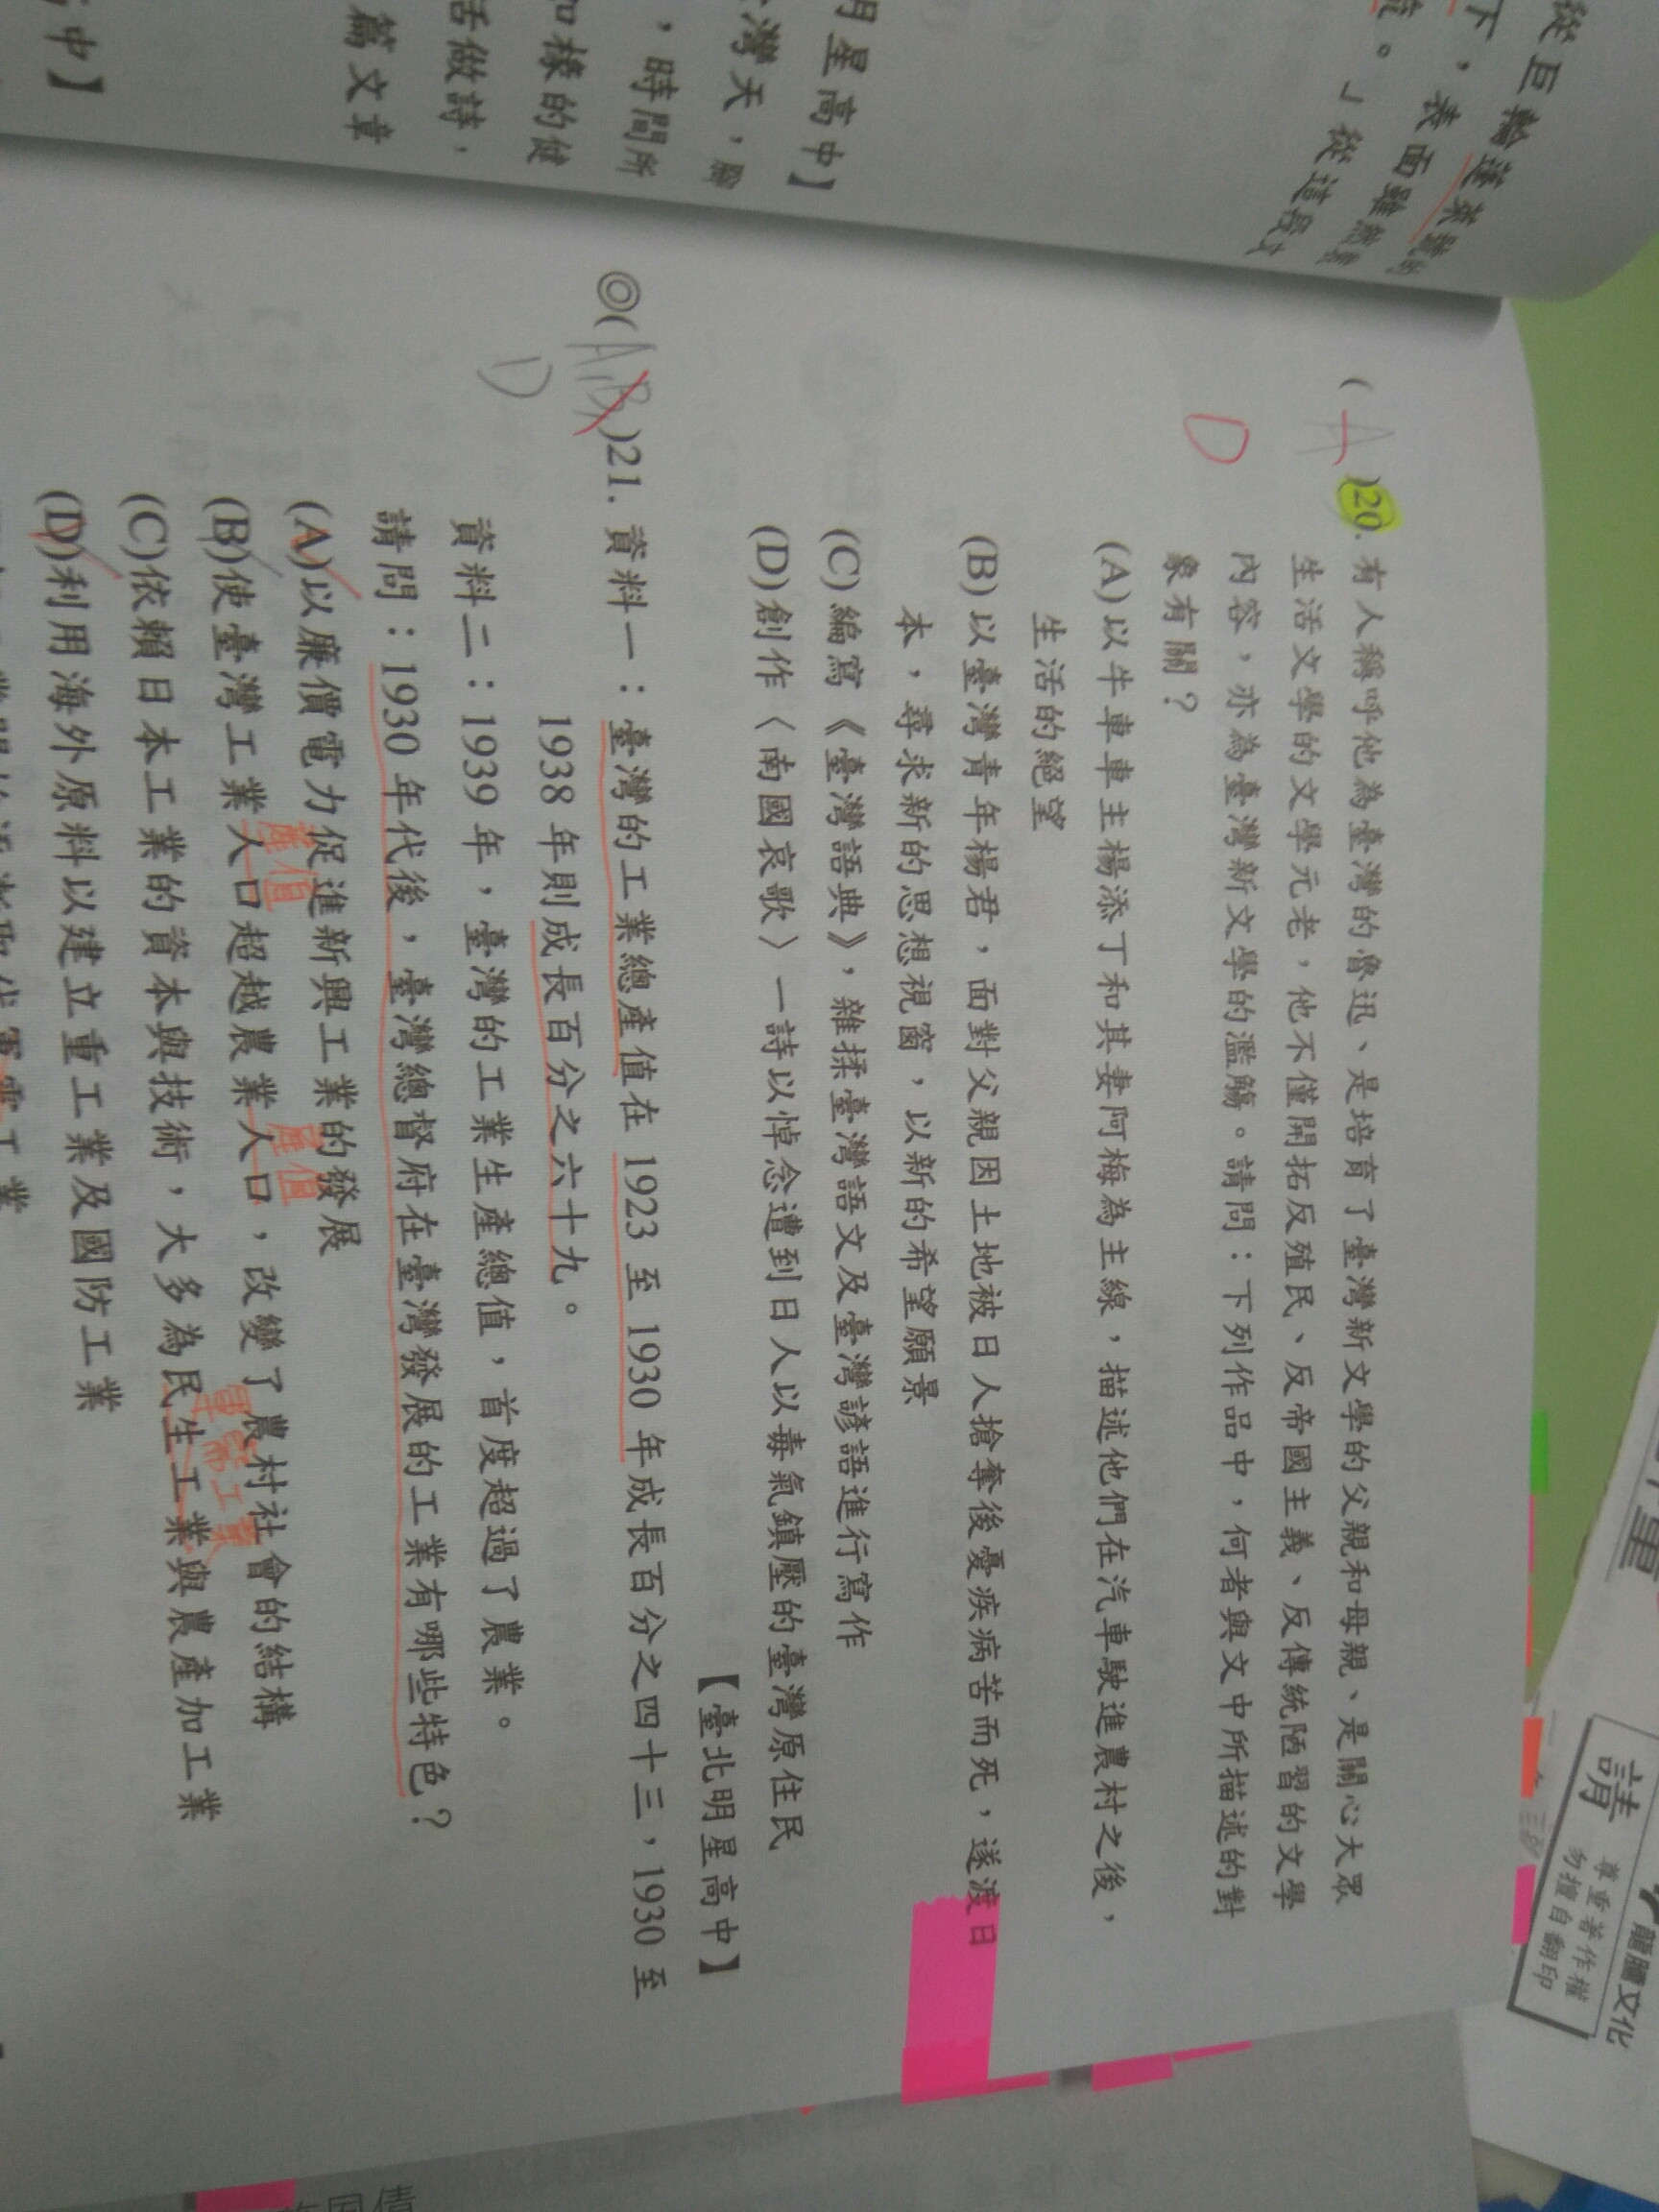 從巨輪
下，表面雖然
。」從這段文
明星高中】
灣天，
，時間所
如樣的健
活做詩，
篇文章
中】
(A)20. 有人稱呼他為臺灣的魯迅、是培育了臺灣新文學的父親和母親、是關心大眾
D
生活文學的文學元老，他不僅開拓反殖民、反帝國主義、反傳統陋習的文學
內容，亦為臺灣新文學的濫觴。請問：下列作品中，何者與文中所描述的對
象有關？
(A)以牛車車主楊添丁和其妻阿梅為主線，描述他們在汽車駛進農村之後，
生活的絕望
(B)以臺灣青年楊君，面對父親因土地被日人搶奪後憂疾病苦而死，遂渡日
本，尋求新的思想視窗，以新的希望願景
(C)編寫《臺灣語典》，雜揉臺灣語文及臺灣諺語進行寫作
(D)創作〈南國哀歌〉一詩以悼念遭到日人以毒氣鎮壓的臺灣原住民
【臺北明星高中】
◎(A,B)21. 資料一：臺灣的工業總產值在 1923 至 1930 年成長百分之四十三，1930 至
D
1938 年則成長百分之六十九。
資料二：1939 年，臺灣的工業生產總值，首度超過了農業。
請問：1930 年代後，臺灣總督府在臺灣發展的工業有哪些特色？
(A)以廉價電力促進新興工業的發展
產值 產值
(B)使臺灣工業人口超越農業人口，改變了農村社會的結構
軍需工業
(C)依賴日本工業的資本與技術，大多為民生工業與農產加工業
(D)利用海外原料以建立重工業及國防工業
請
尊重著作權
勿擅自翻印
龍騰文化